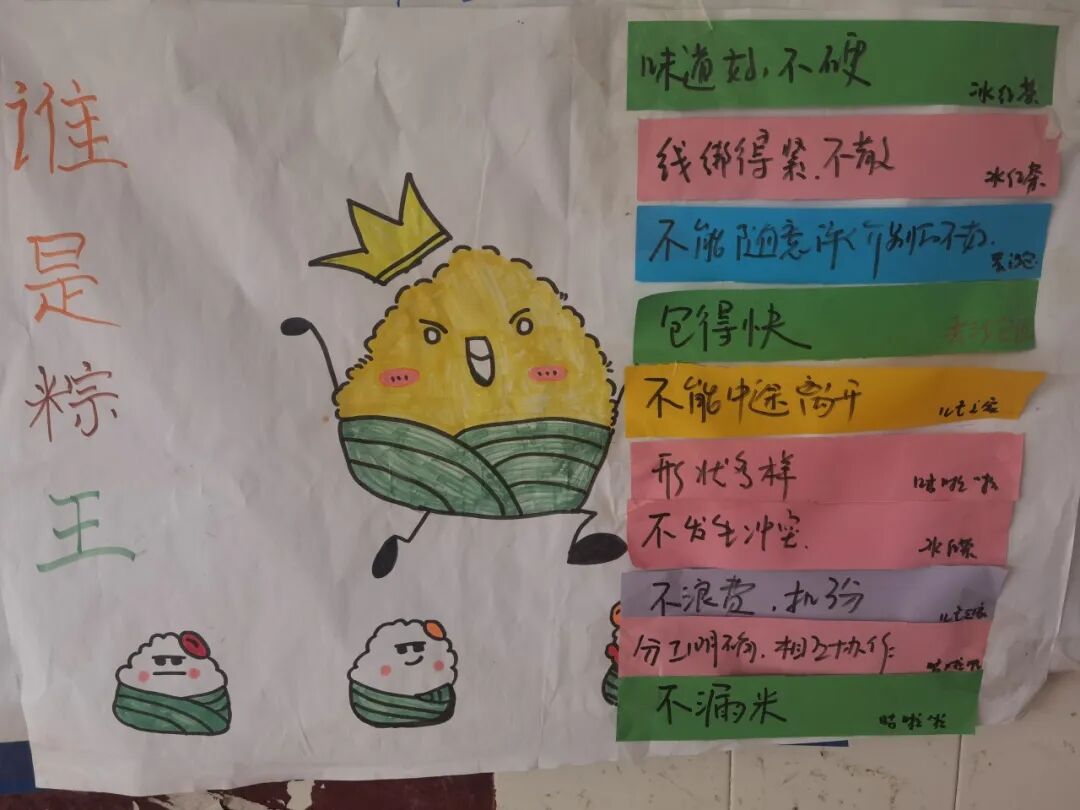 谁
是
粽
王
味道好、不硬
冰红茶
线绑得紧、不散
冰红茶
不能随意评价别
包得快
不能中途离开
形状多样
哈啦啦
不发生冲突
冰红茶
不浪费、扣分
分工明确、相互协作
不漏米
哈啦啦